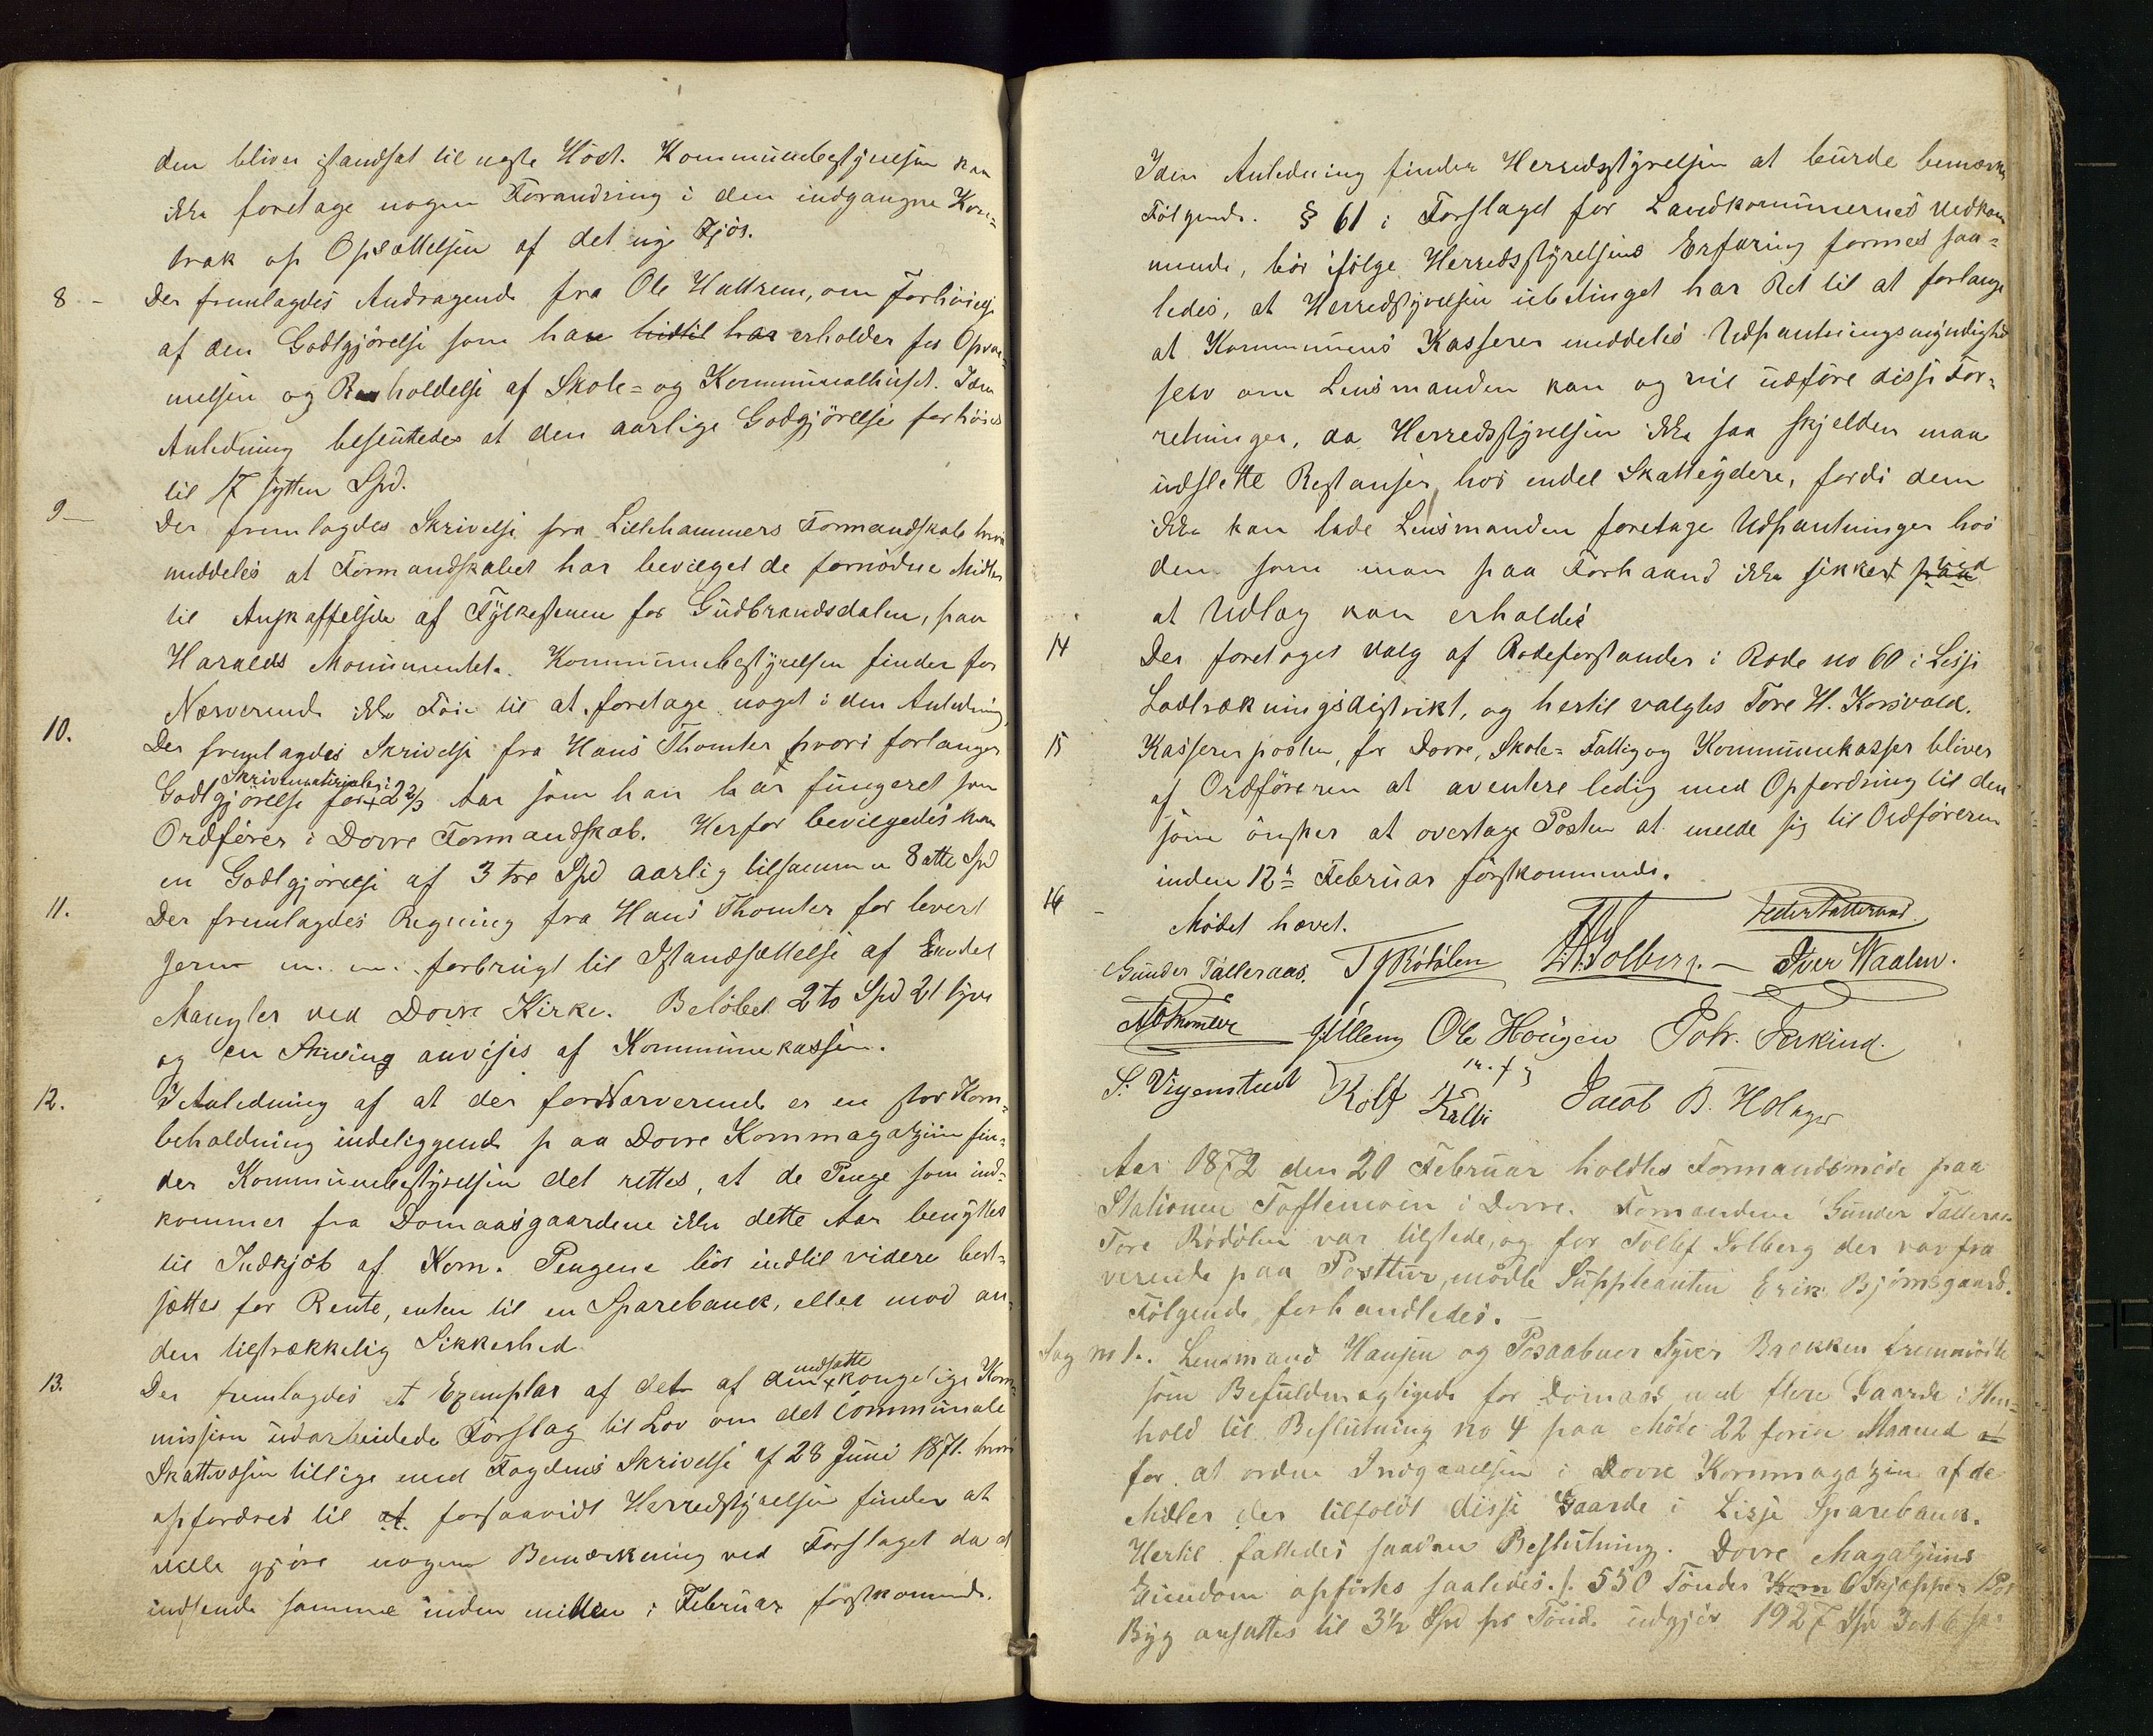 den bliver istandsat til neste Höst. Kommunebestyrelsen kan
ikke foretage nogen Forandring i den indgangne Kon=
trak op Opsættelsen af det ny Fjös.
8 - Der fremlagdes Andragende fra Ole Hattrem, om Forhöielse
af den Godtgjörelse som han hidtil har erholder for Opvar-
melsen og Renholdelse af Skole= og Kommunalhuset. I den
Anledning besluttedes at den aarlige Godgjörelse forhöies
til 17 sytten Spd.
9 — Der fremlagdes Skrivelse fra Lillehammers Formandskab hvori
meddeles at Formandskabet har bevilget de fornödne Midler
til Anskaffelsen af Fylkestenen for Gudbrandsdalen, paa
Haralds Monumentet. Kommunebestyrelsen finder for
Nærverende ikke Föie til at foretage noget i den Anledning
10. Der fremlagdes Skrivelse fra Hans Thomter hvori forlanger
Skrivematerialer i
Godtgjörelse for 2 2/3 Aar som han har fungeret som
Ordförer i Dovre Formandskab. Herfor bevilgedes ham
en Godtgjörelse af 3 tre Spd aarlig tilsammen 8 otte Spd
11. Der fremlagdes Regning fra Hans Thomter for levert
Jern m. m. forbrugt til Istandsættelse af Endel
Mangler ved Dovre Kirke. Belöbet 2 to Spd 21 tyve
og en Skilling anvises af Kommunekassen.
12. I Anledning af at der for Nærverende er en stor Korn=
beholdning indeliggende paa Dovre Kornmagazin fin=
der Kommunebestyrelsen det rettes, at de Penge som ind=
kommer fra Domaasgaardene ikke dette Aar benyttes
til Indkjöb af Korn. Pengene bör indtil videre bort=
sættes for Rente, enten til en Sparebank, eller mod an-
den tilstrækkelig Sikkerhed.
13. Der fremlagdes et Exemplar af det af den nedsatte kongelige Kom-
mission udarbeidede Forslag til Lov om det communale
Skattevæsen tillige med Fogdens Skrivelse af 28 Juni 1871. hvori
opfordres til at forsaavidt Herredstyrelsen finder at
ville gjöre nogen Bemærkning ved Forslaget da at
indsende samme inden midten i Februar förstkommende.
I den Anledning finder Herredstyrelsen at burde bemærke
Fölgende. § 61 i Forslaget for Landkommunernes Vedkom
mende, bör ifölge Herredsstyrelsens Erfaring formes saa=
ledes, at Herredstyrelsen ubetinget har Ret til at forlange
at Kommunens Kasserer meddeles Udpantningsmyndighed
selv om Lensmanden kan og vil udföre disse For=
retninger, da Herredsstyrelsen ikke saa skjelden maa
udslette Restanser hos endel Skatteydere, fordi dem
ikke kan lade Lensmanden foretage Udpantninger hos
dem som man paa Forhaand ikke sikkert paa ved
at Udlæg kan erholdes
14 Der foretoges valg af Rodeforstander i Rode no 60 i Lesje
Lodtrækningsdistrikt, og hertil valgtes Tore H. Korsvold.
15 Kassererposten, for Dovre, Skole= Fattig og Kommunekasser bliver
af Ordföreren at avertere ledig med Opfordring til den
som önsker at overtage Posten at melde sig til Ordföreren
inden 12te Februar förstkommende.
16 - Mödet hævet.
Peder Talleraas
Gunder Talleraas. T J Rödölen T. Solberg. — Iver Waalen.
Thomter Ole Hougen Potr. Ferkind.
m. f. P.
S. Vigenstad Rolf Kalbe Jacob B. Holager
Aar 1872 den 20 Februar holdtes Formandsmöde paa
Stationen Toftemoen i Dovre. Formændene Gunder Talleraas
Tore Rödölen var tilstede, og for Tollef Solberg der var fra
værende paa Posttur, mödte Suppleanten Erik Bjørnsgaard.
Fölgende forhandledes.
Sag no 1. Lensmand Hansen og Posaabner Syver Bækken fremmödte
som Befuldmægtigede for Domaas med flere Gaarde i Hen=
hold til Beslutning no 4 paa Möde 22 forrige Maaned at
for at ordne Indgaaelsen i Dovre Kornmagazin af de
Midler der tilfoldt disse Gaarde i Lesje Sparebank.
Hertil fattedes saadan Beslutning. Dovre Magazins
Eiendom opförtes saaledes: 1. 550 Tönder Korn 6 Skjæpper
Byg ansattes til 3½ Spd pr Tönde udgjör 1927 Spd 3 ort 6 sk